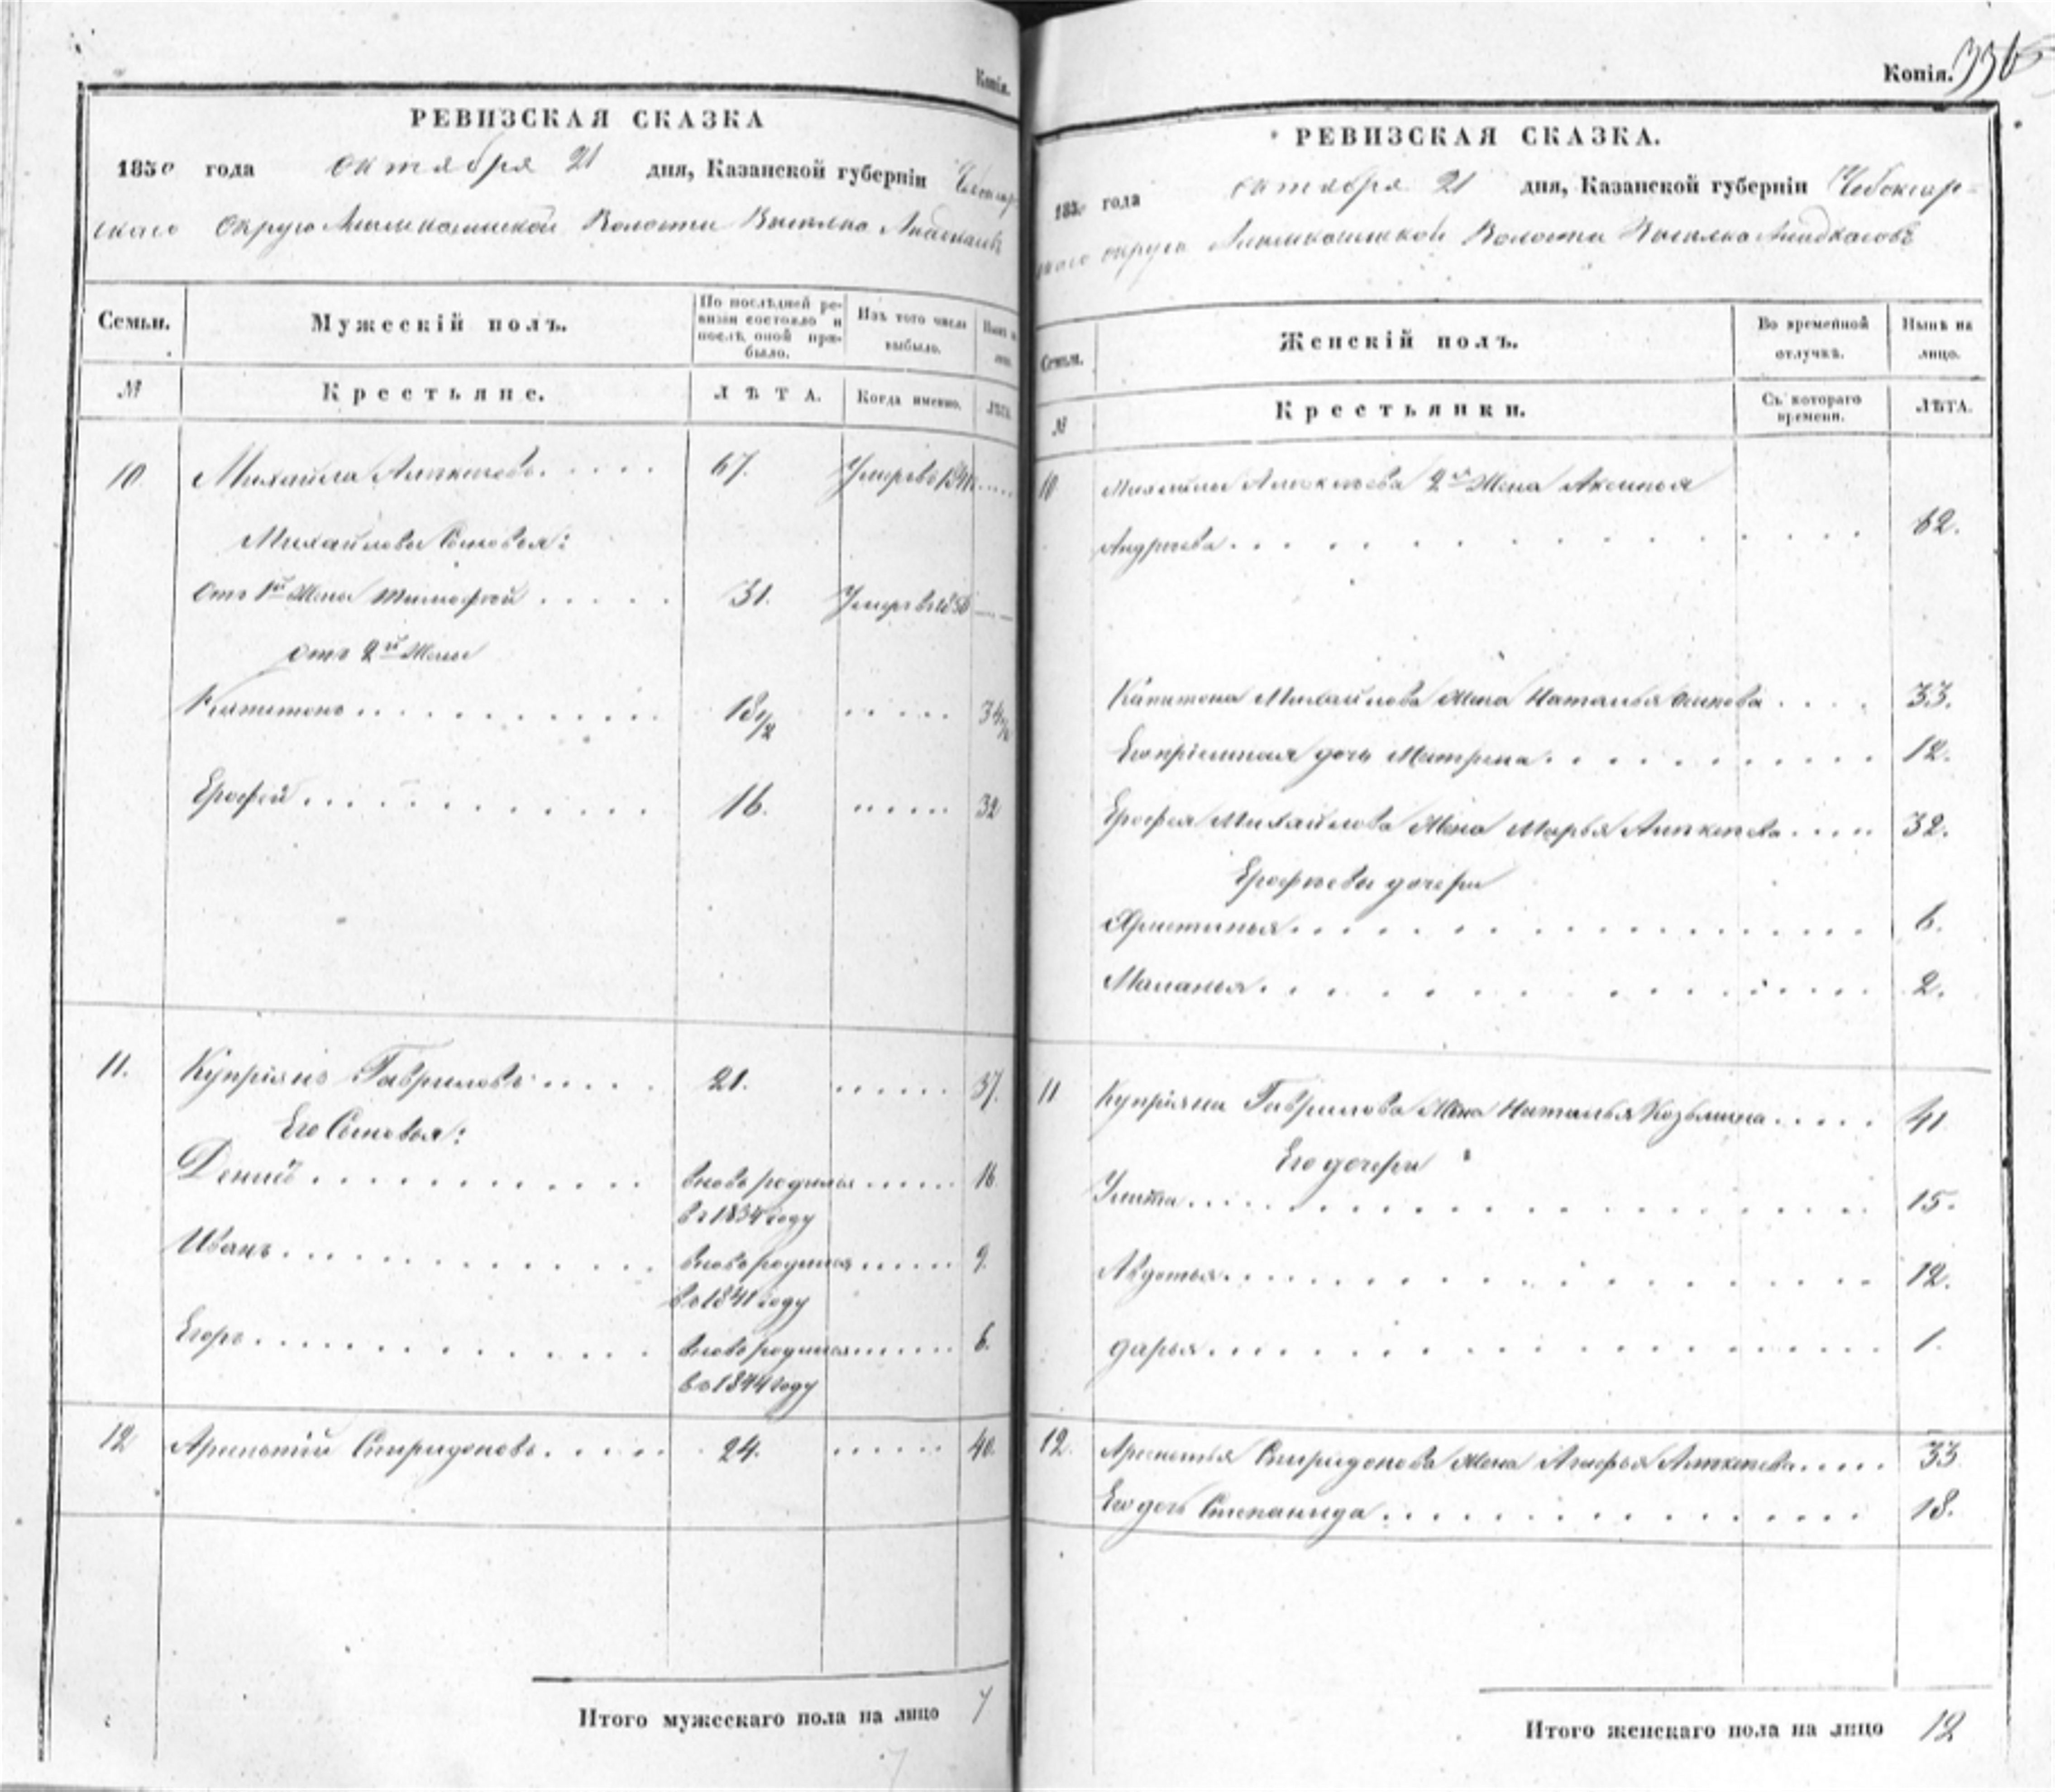 Копія.
РЕВИЗСКАЯ СКАЗКА
1850 года октября 21 дня, Казанской губерніи Чебоксар-
скаго округа Волости Выселка
Семьи.
Мужескій полъ.
По послѣдней ре-
визіи состояло и
послѣ оной при-
было.
Изъ того числа
выбыло.
Нынѣ на
лицо.
№
Крестьяне.
ЛѢТА.
Когда именно.
ЛѢТА.
10 Михайла 67. Умеръ въ
Михайловы Сыновья:
Отъ 1й Жены Тимофей 31. Умеръ въ
отъ 2й Жены
Капитонъ 18 1/2 34 1/2
Ерофей 16. 32
11. Купріянъ Гавриловъ 21. 37.
Его Сыновья:
Денисъ вновь родился 16
въ 1834 году
Иванъ вновь родился 9.
въ 1841 году
Егоръ вновь родился 6.
въ 1844 году
12 Арсентій Спиридоновъ 24. 40.
Итого мужескаго пола на лицо 7
7
Копія. 336
РЕВИЗСКАЯ СКАЗКА.
1850 года октября 21 дня, Казанской губерніи Чебоксар-
скаго округа Волости Выселка
Семьи.
Женскій полъ.
Во временной
отлучкѣ.
Нынѣ на
лицо.
№
Крестьянки.
Съ котораго
времени.
ЛѢТА.
10 Михайлы 2я Жена Аксинья
Андреева 62.
Капитона Михайлова Жена Наталья Осипова 33.
Его пріемная дочь Матрена 12.
Ерофея Михайлова Жена Марья 32.
Ерофеевы дочери
Христинья 6.
Маланья 2.
11 Купріяна Гаврилова Жена Наталья Козьмина 41
Его дочери
Улита 15.
Авдотья 12.
Дарья 1.
12. Арсентья Спиридонова Жена Агафья 33
Его дочь Степанида 18.
Итого женскаго пола на лицо 12